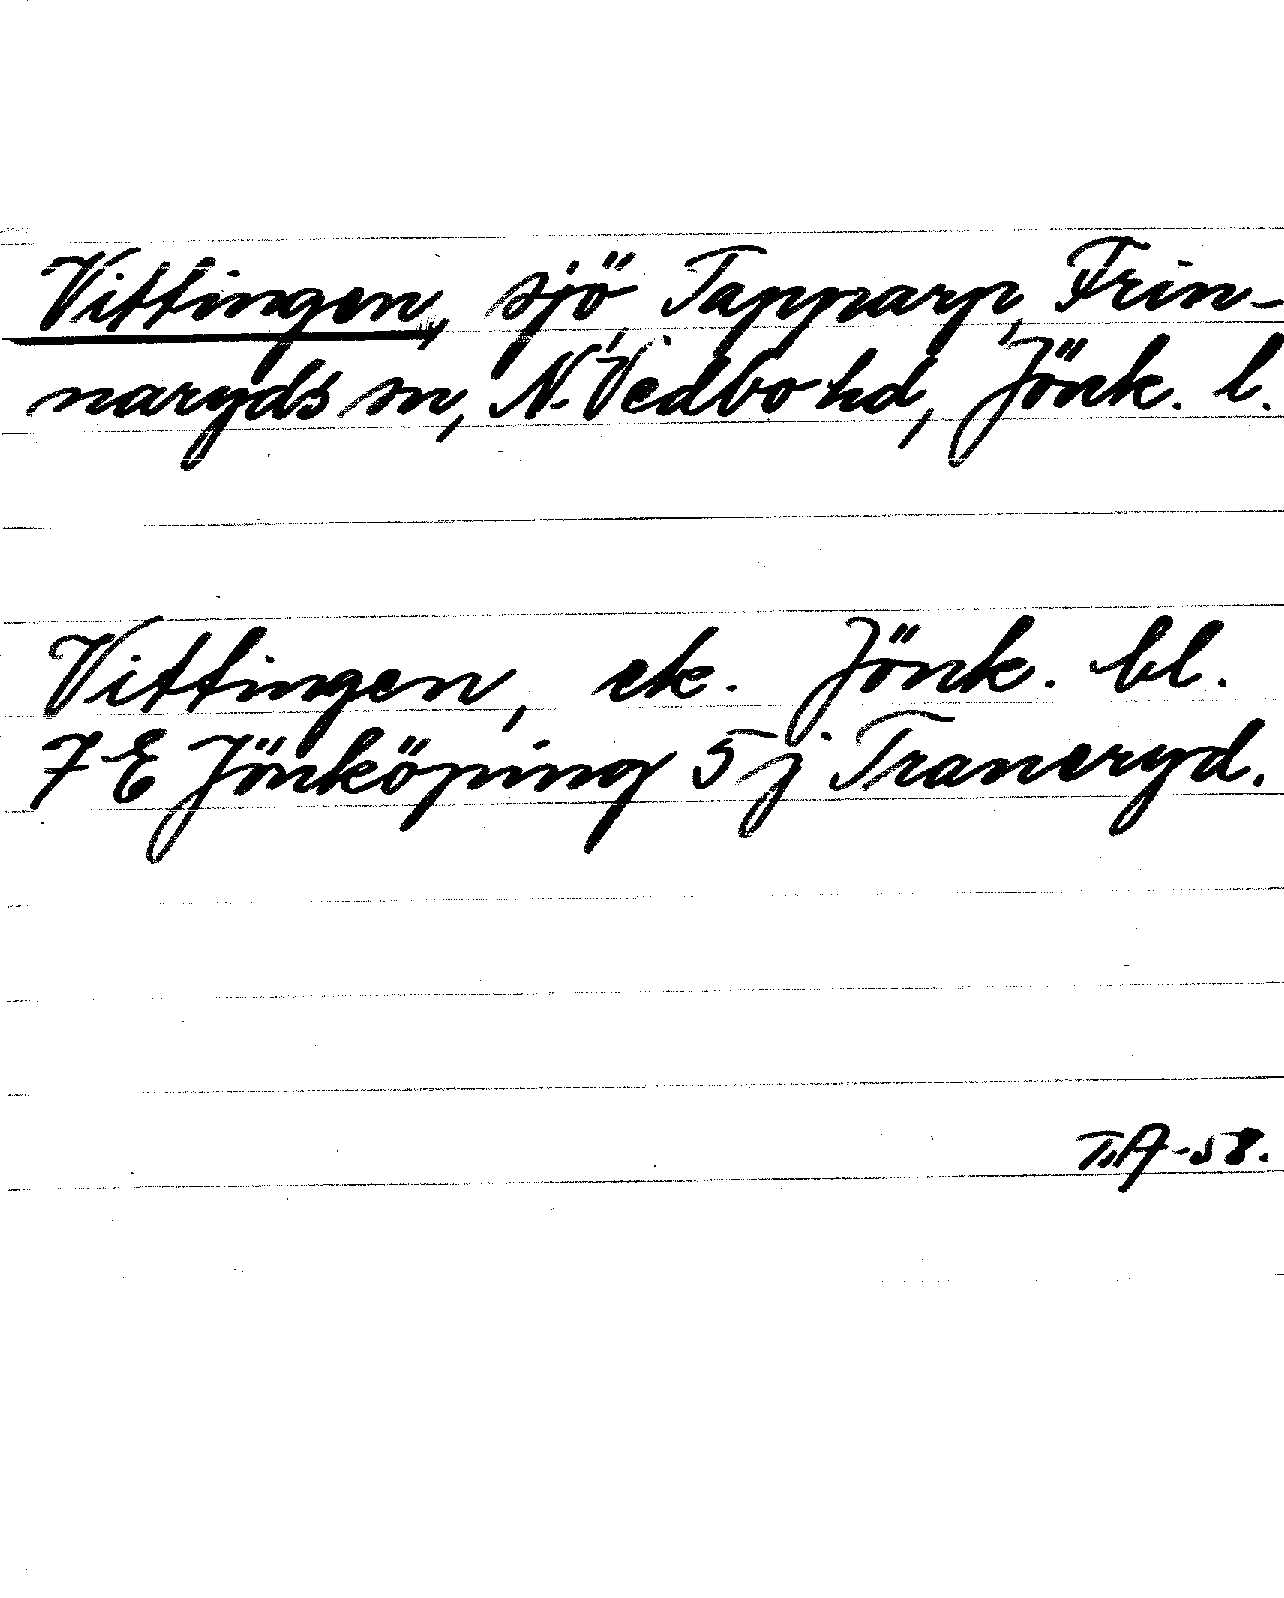 Vittingen, sjö, Tapparp, Frin-
naryds sn, N. Vedbo hd, Jönk. l.
Vittingen, ek. Jönk. bl.
7 E Jönköping 5 j Traneryd.
T.A-58.